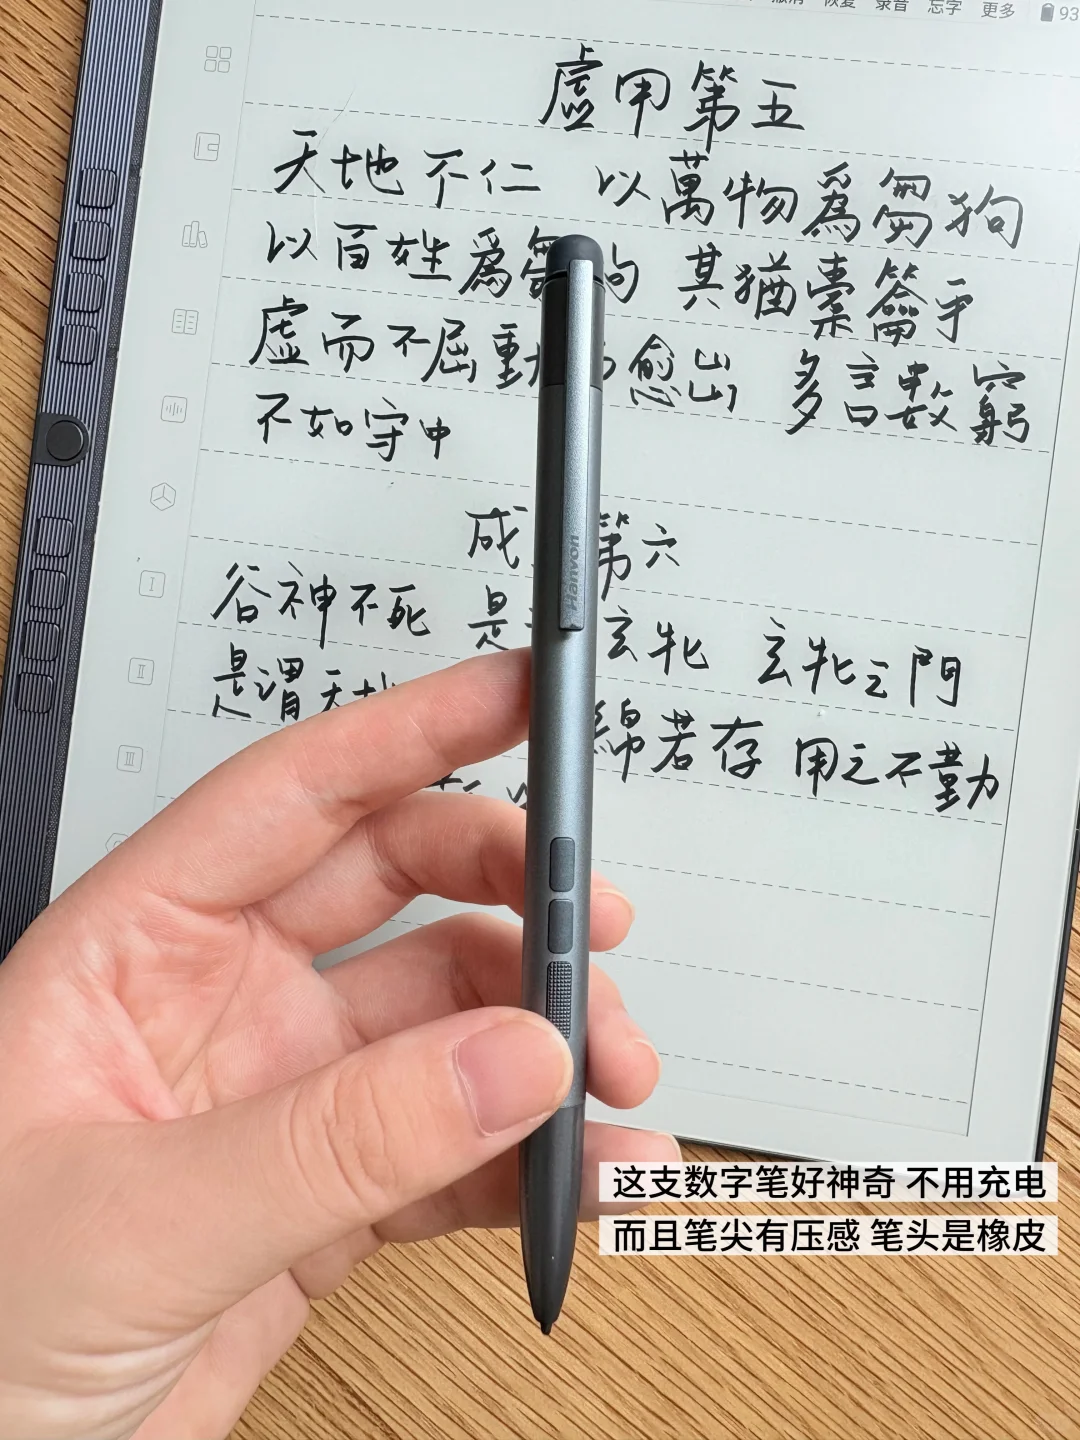 恢复 录音 忘字 更多 93
虛用第五
天地不仁 以萬物爲芻狗
以百姓爲芻狗 其猶橐籥乎
虛而不屈動 愈出 多言數窮
不如守中
成 第六
谷神不死 是 玄牝 玄牝之門
是謂天地 綿若存 用之不勤
Hanvon
I
II
III
这支数字笔好神奇 不用充电
而且笔尖有压感 笔头是橡皮